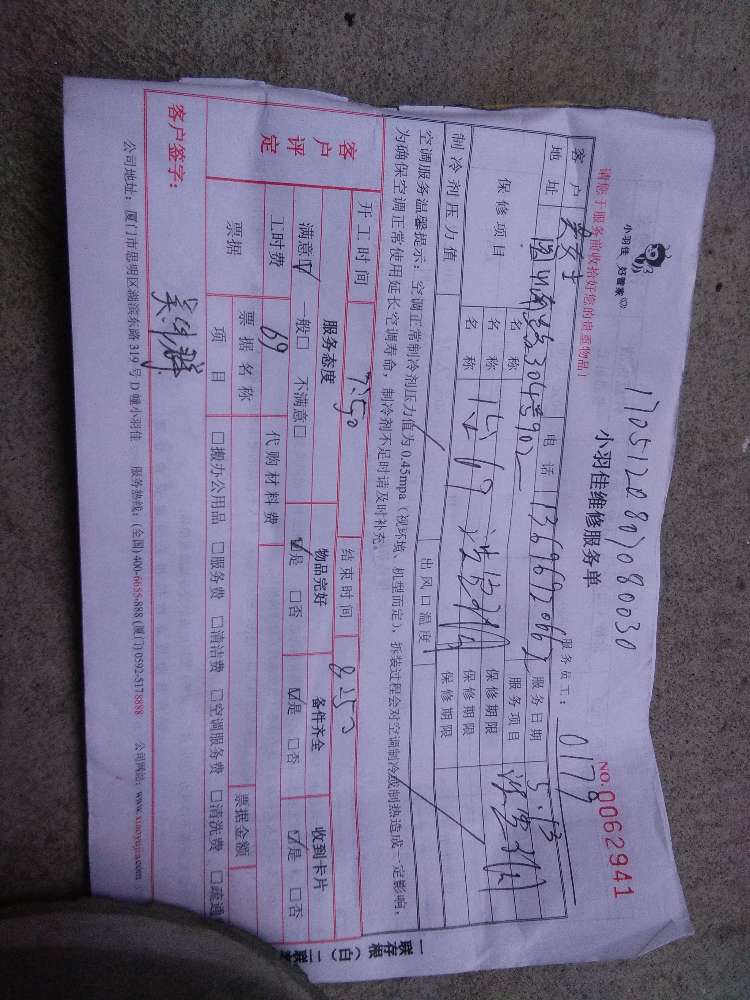 1705120807080030
小羽佳 好管家
小羽佳维修服务单
NO.0062941
请您于服务前收拾好您的贵重物品！
服务员工： 0178
客户 吴女士 电话 13696920662 服务日期 5.13
地址 304号902 服务项目
保修项目 名称 保修期限
名称 保修期限
制冷剂压力值 出风口温度
空调服务温馨提示：空调正常制冷剂压力值为 0.45mpa（视环境、机型而定），拆装过程会对空调制冷或制热造成一定影响，
为确保空调正常使用延长空调寿命，制冷剂不足时请及时补充。
开工时间 7:50 结束时间 8:50
客户评定 服务态度 物品完好 备件齐全 收到卡片
满意☑ 一般□ 不满意□ ☑是 □否 ☑是 □否 ☑是 □否
工时费 69 代购材料费
票据 票据名称 票据金额
项目 □搬办公用品 □服务费 □清洁费 □空调服务费 □清洗费 □疏通
客户签字：
公司地址：厦门市思明区湖滨东路 319 号 D 幢小羽佳 服务热线：(全国) 400-6655-888 (厦门) 0592-5178888 公司网站：www.xiaoyujia.com
一联存根（白）二联